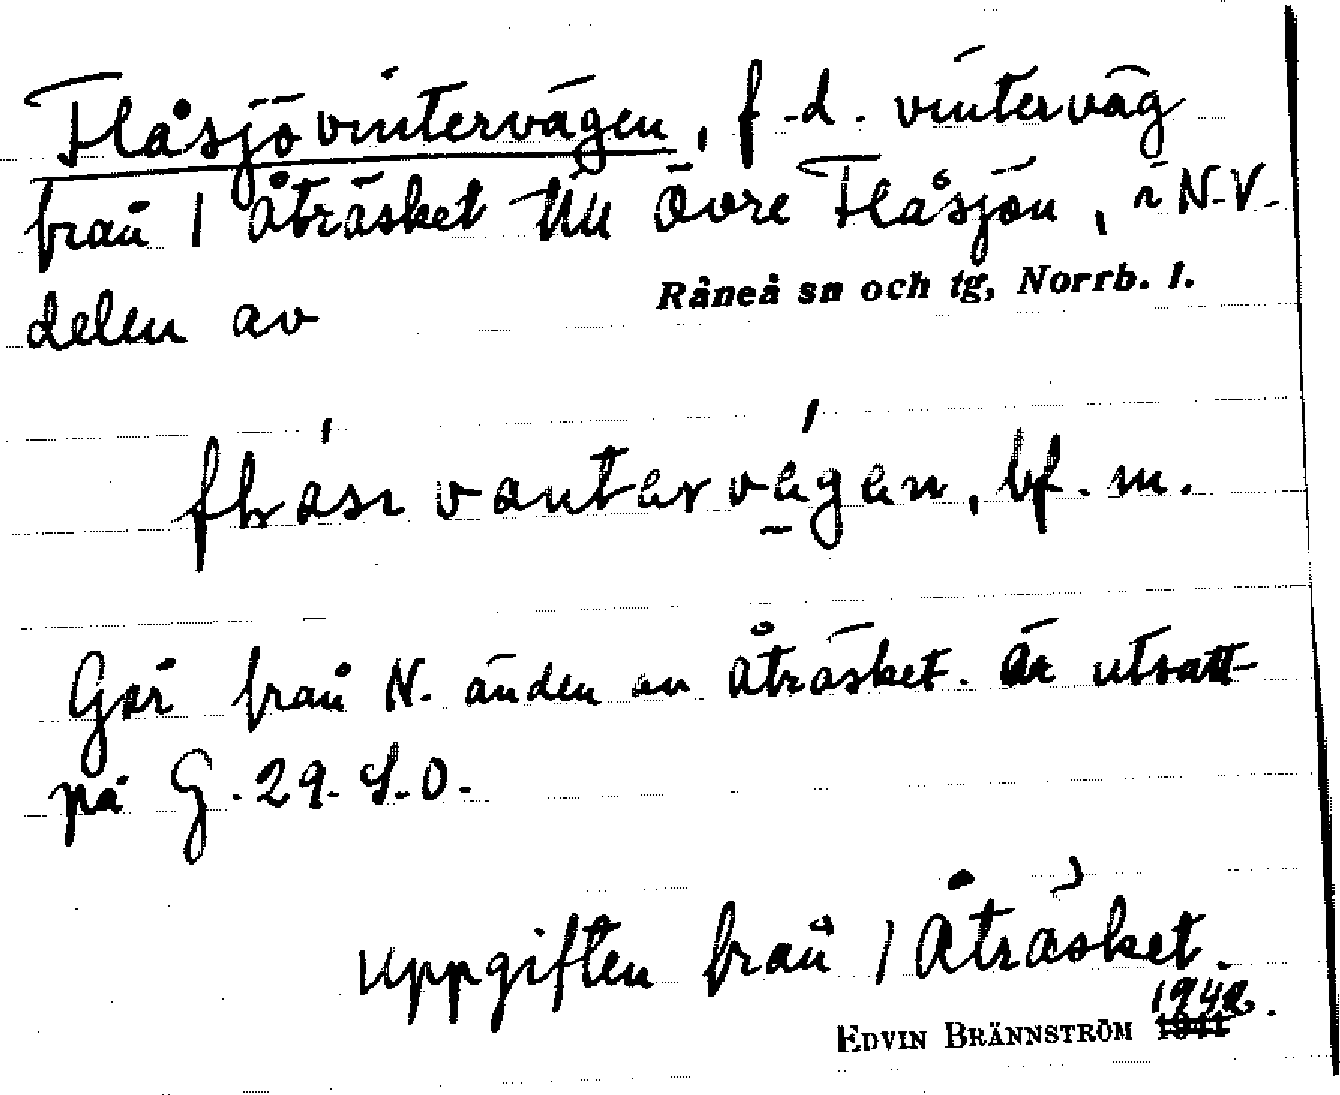 Flåsjövintervägen, f.d. vinterväg
från / Åträsket till Övre Flåsjön, i N.V.
Råneå sn och tg, Norrb. l.
delen av
bf. m.
Går från N. änden av Åträsket. Är utsatt
på G. 29. S.O.
Uppgiften från / Åträsket.
1942.
EDVIN BRÄNNSTRÖM 1941